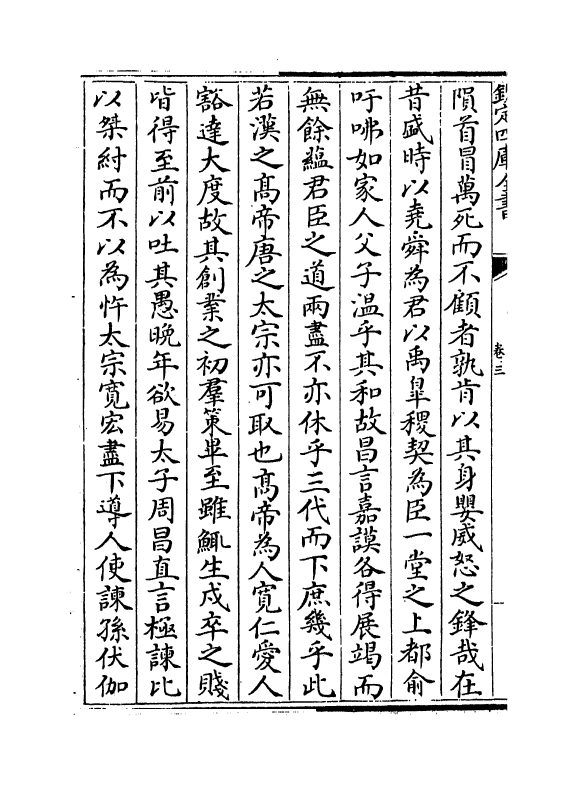 欽定四庫全書
卷三
隕首冒萬死而不顧者孰肯以其身嬰威怒之鋒哉在
昔盛時以堯舜為君以禹臯稷契為臣一堂之上都俞
吁咈如家人父子溫乎其和故昌言嘉謨各得展竭而
無餘蘊君臣之道兩盡不亦休乎三代而下庶幾乎此
若漢之髙帝唐之太宗亦可取也髙帝為人寛仁愛人
豁達大度故其創業之初羣策畢至雖鯫生戍卒之賤
皆得至前以吐其愚晚年欲易太子周昌直言極諫比
以桀紂而不以為忤太宗寛宏盡下導人使諫孫伏伽